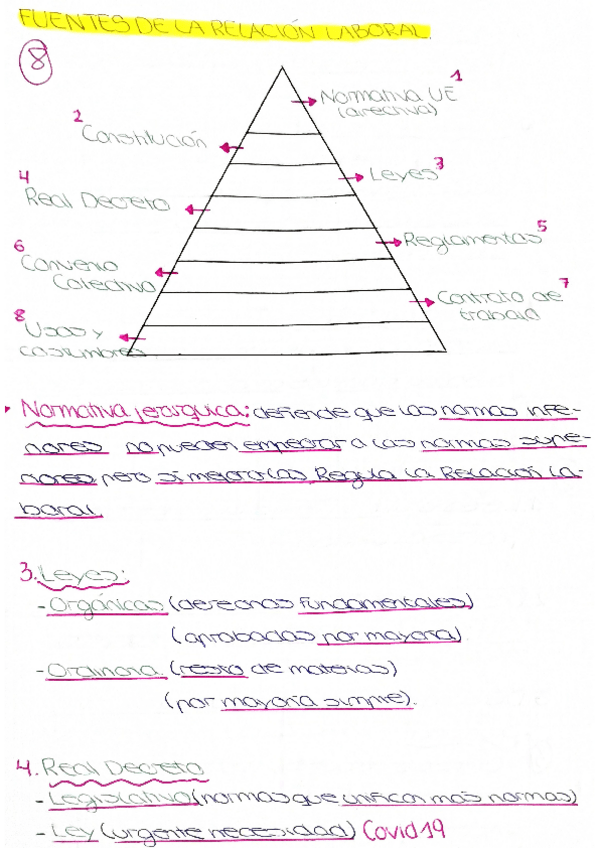 FUENTES DE LA RELACIÓN LABORAL.
8
1
Normativa UE
(directiva)
2
Constitución
3
Leyes
4
Real Decreto
5
Reglamentos
6
Convenio
Colectivo
7
Contrato de
trabajo
8
Usos y
costumbres
Normativa jerárquica: defiende que las normas infe-
riores no pueden empeorar a las normas supe-
riores pero sí mejorarlas Regula La Relación La-
boral.
3. Leyes:
- Orgánicas (derechos fundamentales)
(aprobadas por mayoría)
- Ordinaria (resto de materias)
(por mayoría simple).
4. Real Decreto
- Legislativa (normas que unifican más normas)
- Ley (urgente necesidad) Covid 19